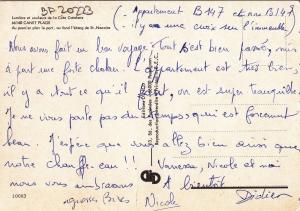 BP 20223
Lumière et couleurs de la Côte Catalane
66140 CANET PLAGE
Au premier plan le port, au fond l'étang de St-Nazaire
(Appartement B 147 et non B 147
il y a une croix sur l'immeuble)
Nous avons fait un bon voyage, tout s'est bien passé, mis
à part une forte chaleur. L'appartement est très bien
il y a tout ce qu'il faut, on est super tranquille.
Je ne vous parle pas du temps qui est forcément
beau. J'espère que vous allez bien ainsi que
notre chauffe-eau !! Vanessa, Nicole et moi
nous vous embrassons A bientôt
grosses Bises Nicole Didier
10083